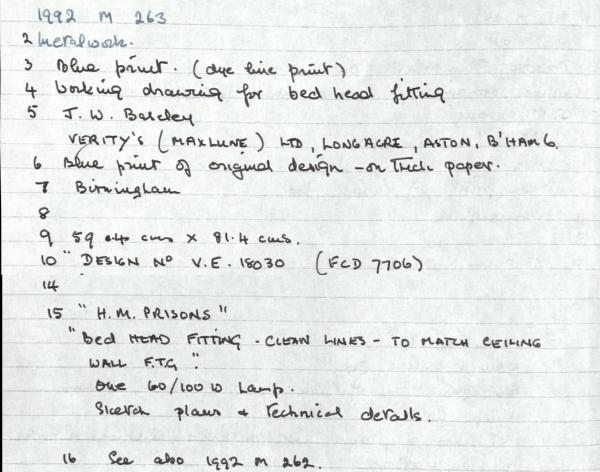 1992 M 263
2 Metalwork.
3 Blue print. (dye line print)
4 Working drawing for bed head fitting
5 J. W. Barcley
VERITY'S (MAXLUME) LTD, LONGACRE, ASTON, B'HAM 6.
6 Blue print of original design - on Thick paper.
7 Birmingham
8
9 59.4 cms x 81.4 cms.
10 "DESIGN NO V.E. 18030 (FCD 7706)
14
15 "H.M. PRISONS"
"Bed HEAD FITTING - CLEAN LINES - TO MATCH CEILING
WALL F.T.G".
One 60/100 W Lamp.
Sketch plans + Technical details.
16 See also 1992 M 262.